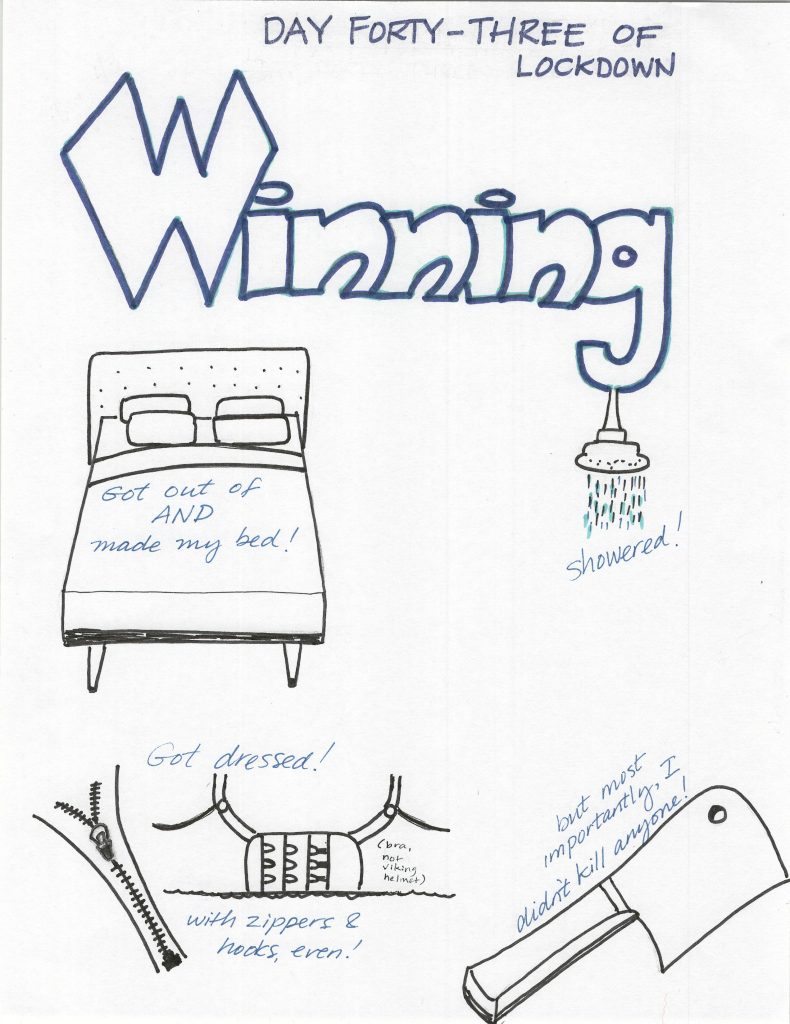 DAY FORTY-THREE OF
LOCKDOWN
Winning
Got out of
AND
made my bed!
showered!
Got dressed!
(bra,
not
viking
helmet)
with zippers &
hooks, even!
but most
importantly, I
didn't kill anyone!